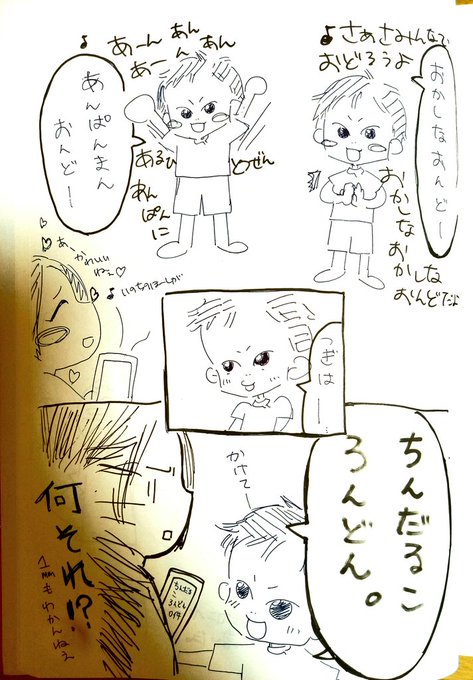 おかしなおんどー
♪さあさみんなで
おどろうよ
おかしな
おかしな
おんどだよ
あんぱんまん
おんどー
♪あーんあんあん
あーんあん
あるひ
とつぜん
あんぱんに
あーかわいい
ねぇ♡
♪いのちのほーしが
つぎはー
ちんだるこ
ろんどん。
かけてー
ちんだる
こ
ろんどん
何それ!?
1mmもわかんねぇ